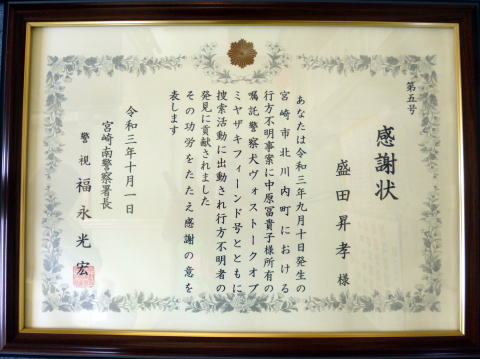 第五号
感謝状
盛田昇孝 様
あなたは令和三年九月十日発生の
宮崎市北川内町における
行方不明事案に中原冨貴子様所有の
嘱託警察犬ヴォストークオブ
ミヤザキフィーンド号とともに
捜索活動に出動され行方不明者の
発見に貢献されました
その功労をたたえ感謝の意を
表します
令和三年十月一日
宮崎南警察署長
警視 福永光宏